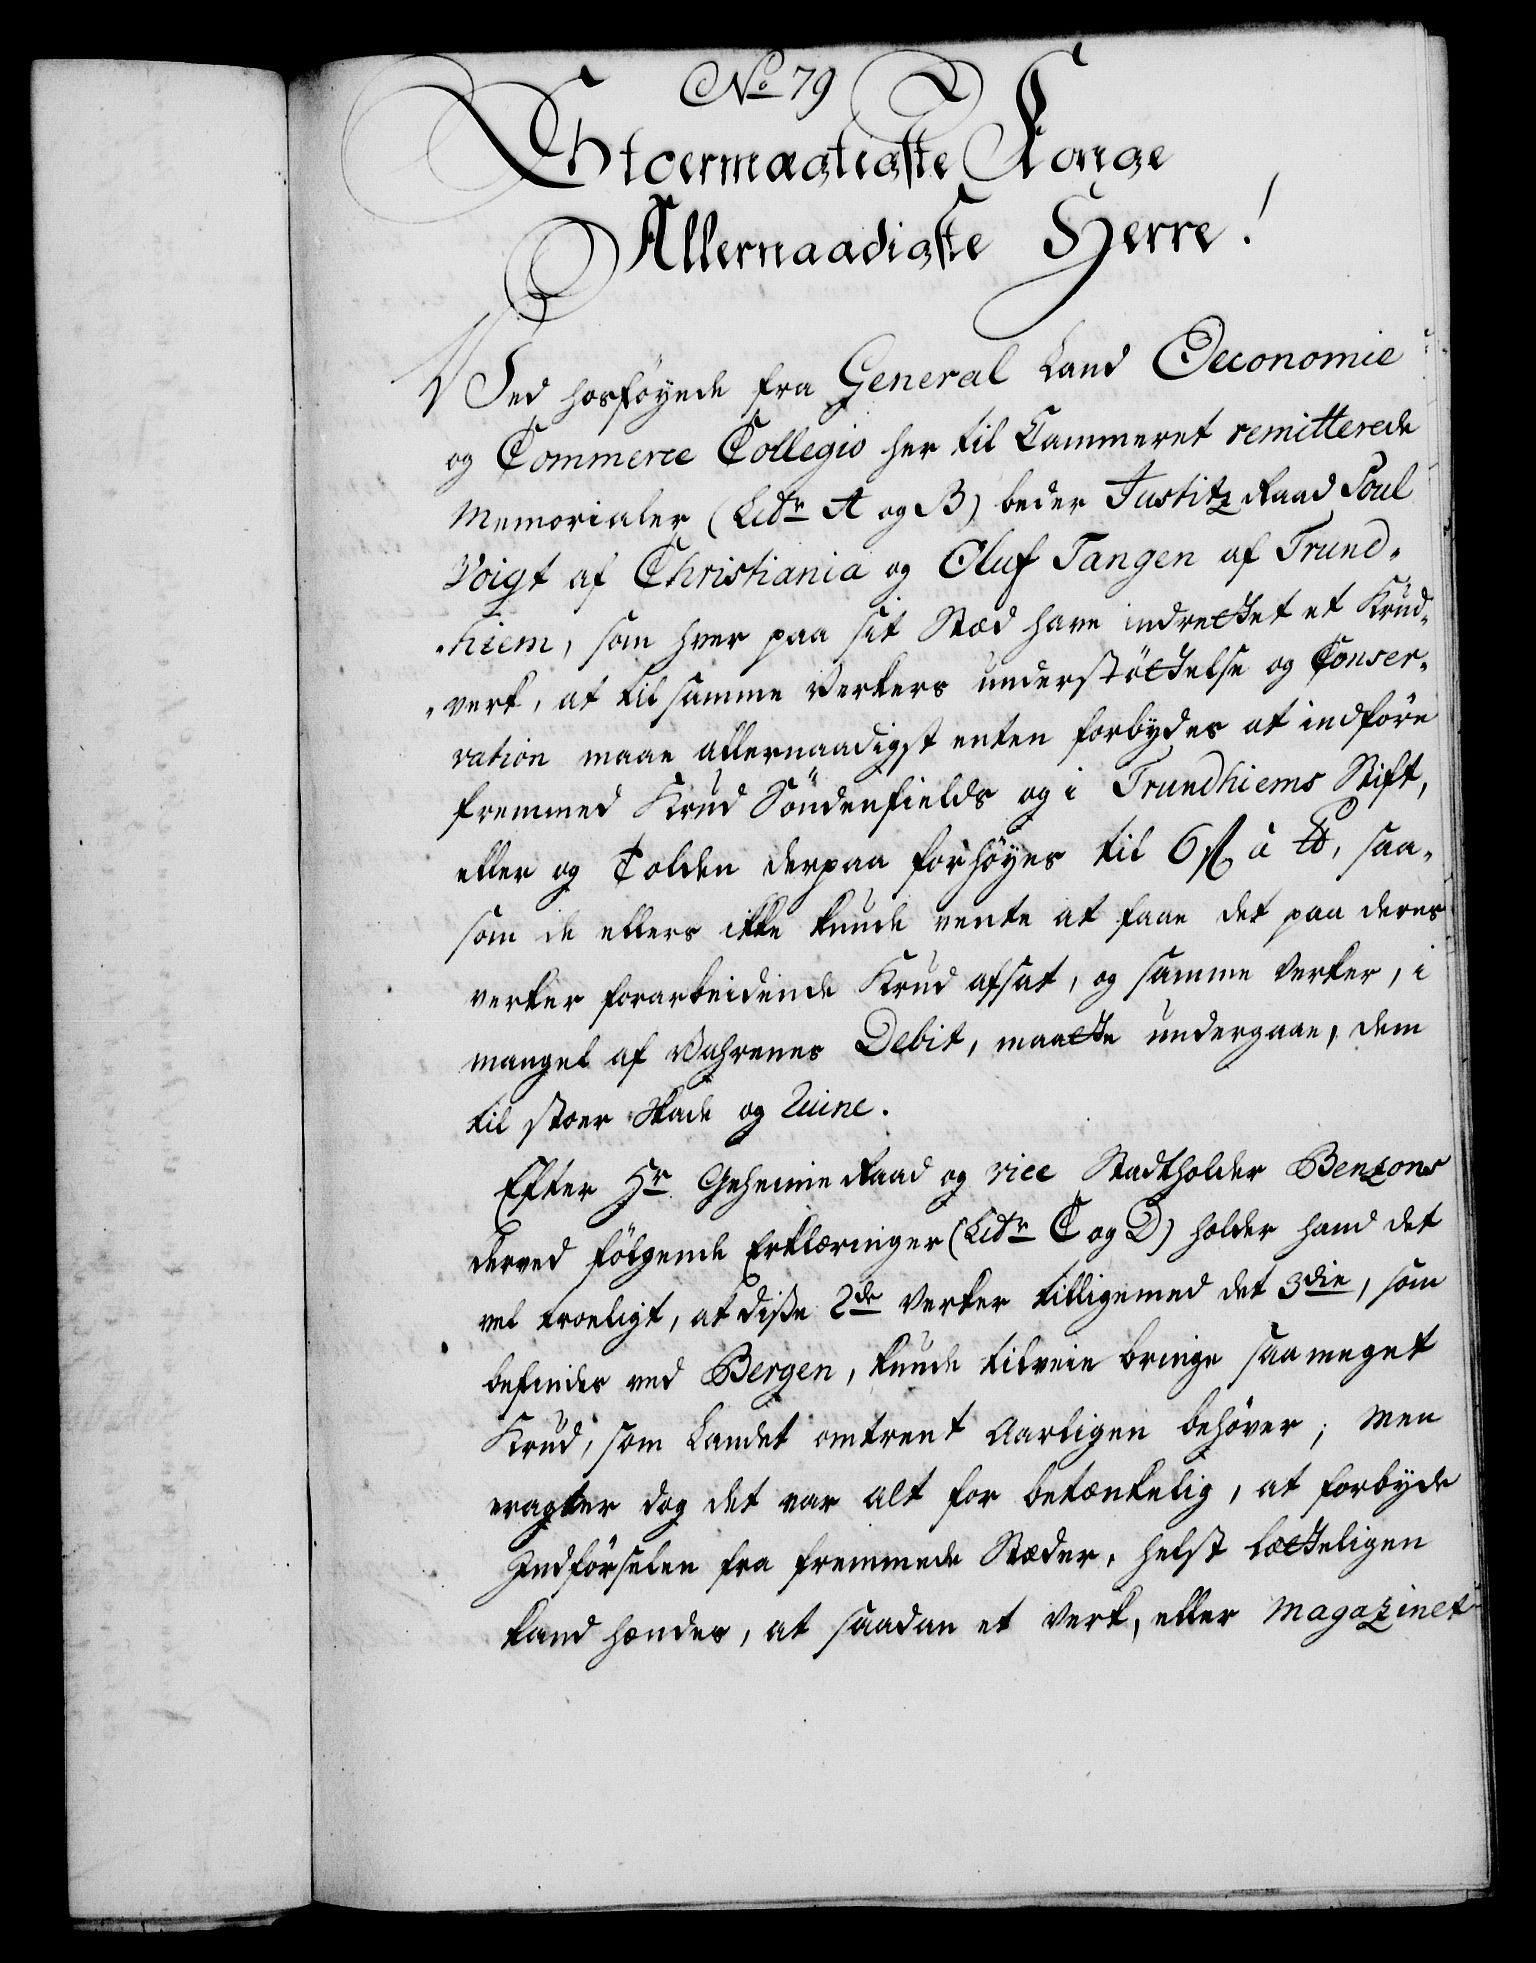 No 79
Stoermægtigste Konge
Allernaadigste Herre!
Ved hosføyede fra General Land Oeconomie
og Commerce Collegio her til Cammeret remitterede
Memorialer (Litr A og B) beder Justitz Raad Poul
Voigt af Christiania og Oluf Tangen af Trund-
-hiem, som hver paa sit Stæd have indrettet et Krud-
-verk, at til samme Verkers understøttelse og Conser-
vation maae allernaadigst enten forbydes at indføre
fremmed Krud Søndenfields og i Trundhiems Stift,
eller og Tolden derpaa forhøyes til 6 ß à ℔, saa-
som de ellers ikke kunde vente at faae det paa deres
verker forarbeidende Krud afsat, og samme Verker, i
mangel af Vahrenes Debit, maatte undergaae, dem
til stoer Skade og Ruine.
Efter Hr Geheime Raad og vice Stadtholder Benzons
derved følgende Erklæringer (Litr C og D) holder hand det
vel troeligt, at diße 2de Verker tilligemed det 3die, som
befindes ved Bergen, kunde tilveie bringe saa meget
Krud, som Landet omtrent Aarligen behøver; Men
eragter dog det var alt for betænkelig, at forbyde
Indførselen fra fremmede Stæder, helst lætteligen
kand hændes, at saadan et Verk, eller Magazinet